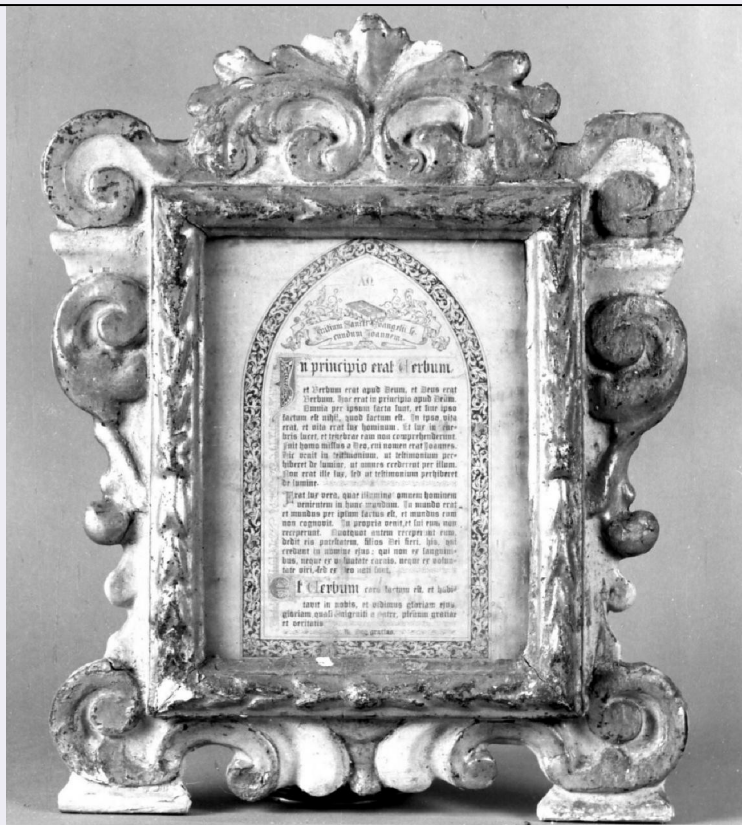 AΩ
Initium Sancti Evangelii se-
cundum Joannem.
In principio erat Verbum,
et Verbum erat apud Deum, et Deus erat
Verbum. Hoc erat in principio apud Deum.
Omnia per ipsum facta sunt, et sine ipso
factum est nihil, quod factum est. In ipso vita
erat, et vita erat lux hominum. Et lux in tene-
bris lucet, et tenebrae eam non comprehenderunt.
Fuit homo missus a Deo, cui nomen erat Joannes.
Hic venit in testimonium, ut testimonium per-
hiberet de lumine, ut omnes crederent per illum.
Non erat ille lux, sed ut testimonium perhiberet
de lumine.
Erat lux vera, quae illuminat omnem hominem
venientem in hunc mundum. In mundo erat
et mundus per ipsum factus est, et mundus eum
non cognovit. In propria venit, et sui eum non
receperunt. Quotquot autem receperunt eum,
dedit eis potestatem, filios Dei fieri, his, qui
credunt in nomine ejus: qui non ex sanguini-
bus, neque ex voluntate carnis, neque ex volun-
tate viri, sed ex Deo nati sunt.
Et Verbum caro factum est, et habi-
tavit in nobis, et vidimus gloriam ejus,
gloriam quasi Unigeniti a Patre, plenum gratiae
et veritatis.
Deo gratias.